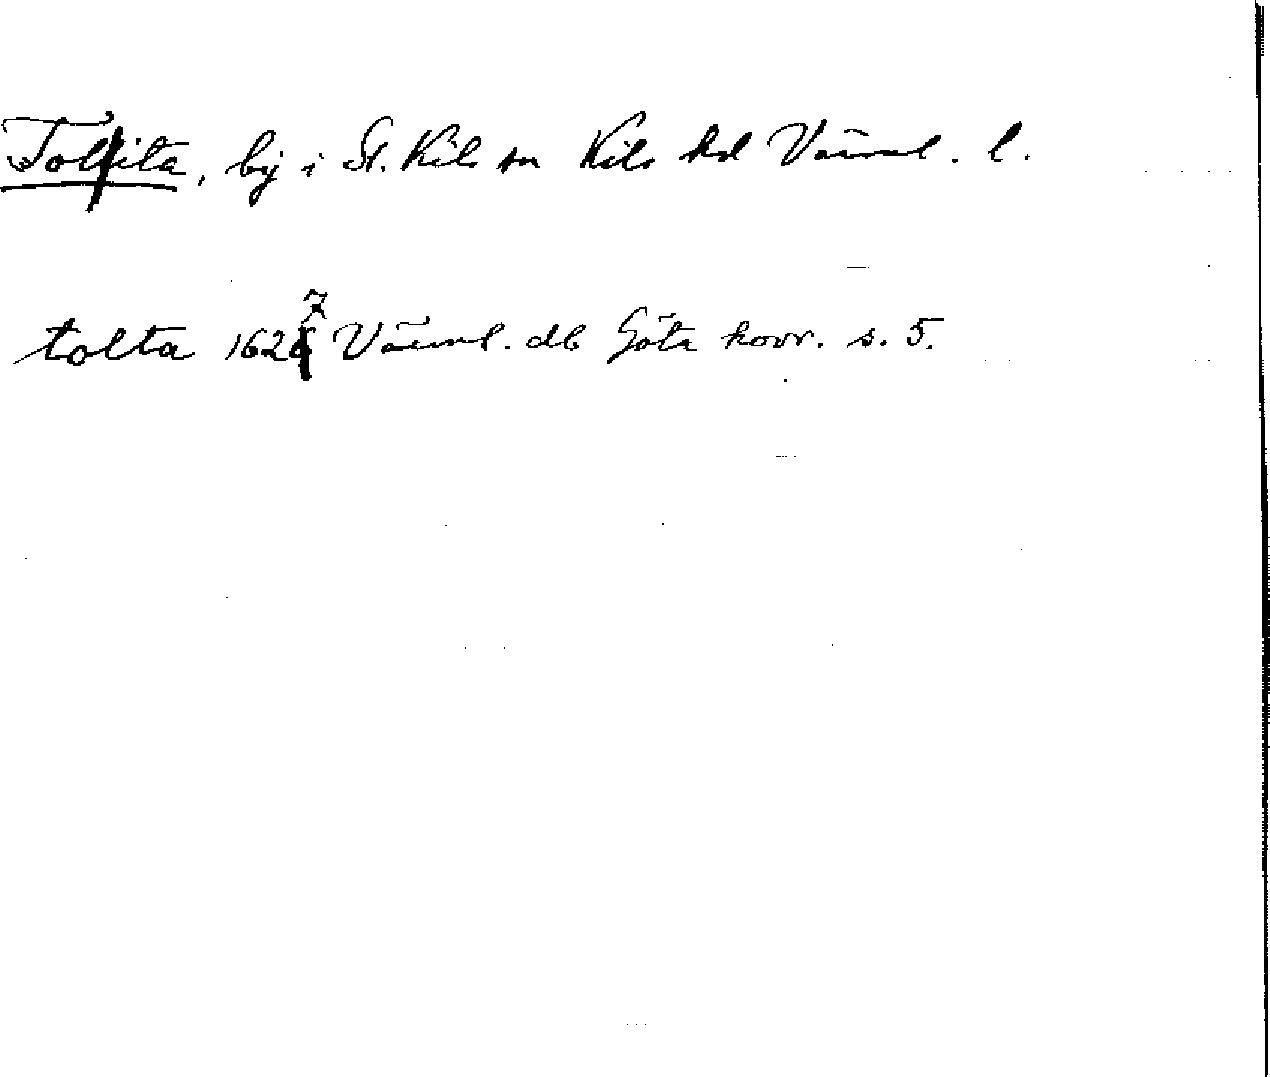 Tolita, by i St. Kils sn Kils hd Värml. l.
tolta 1627 Värml. db Göta hovr. s. 5.